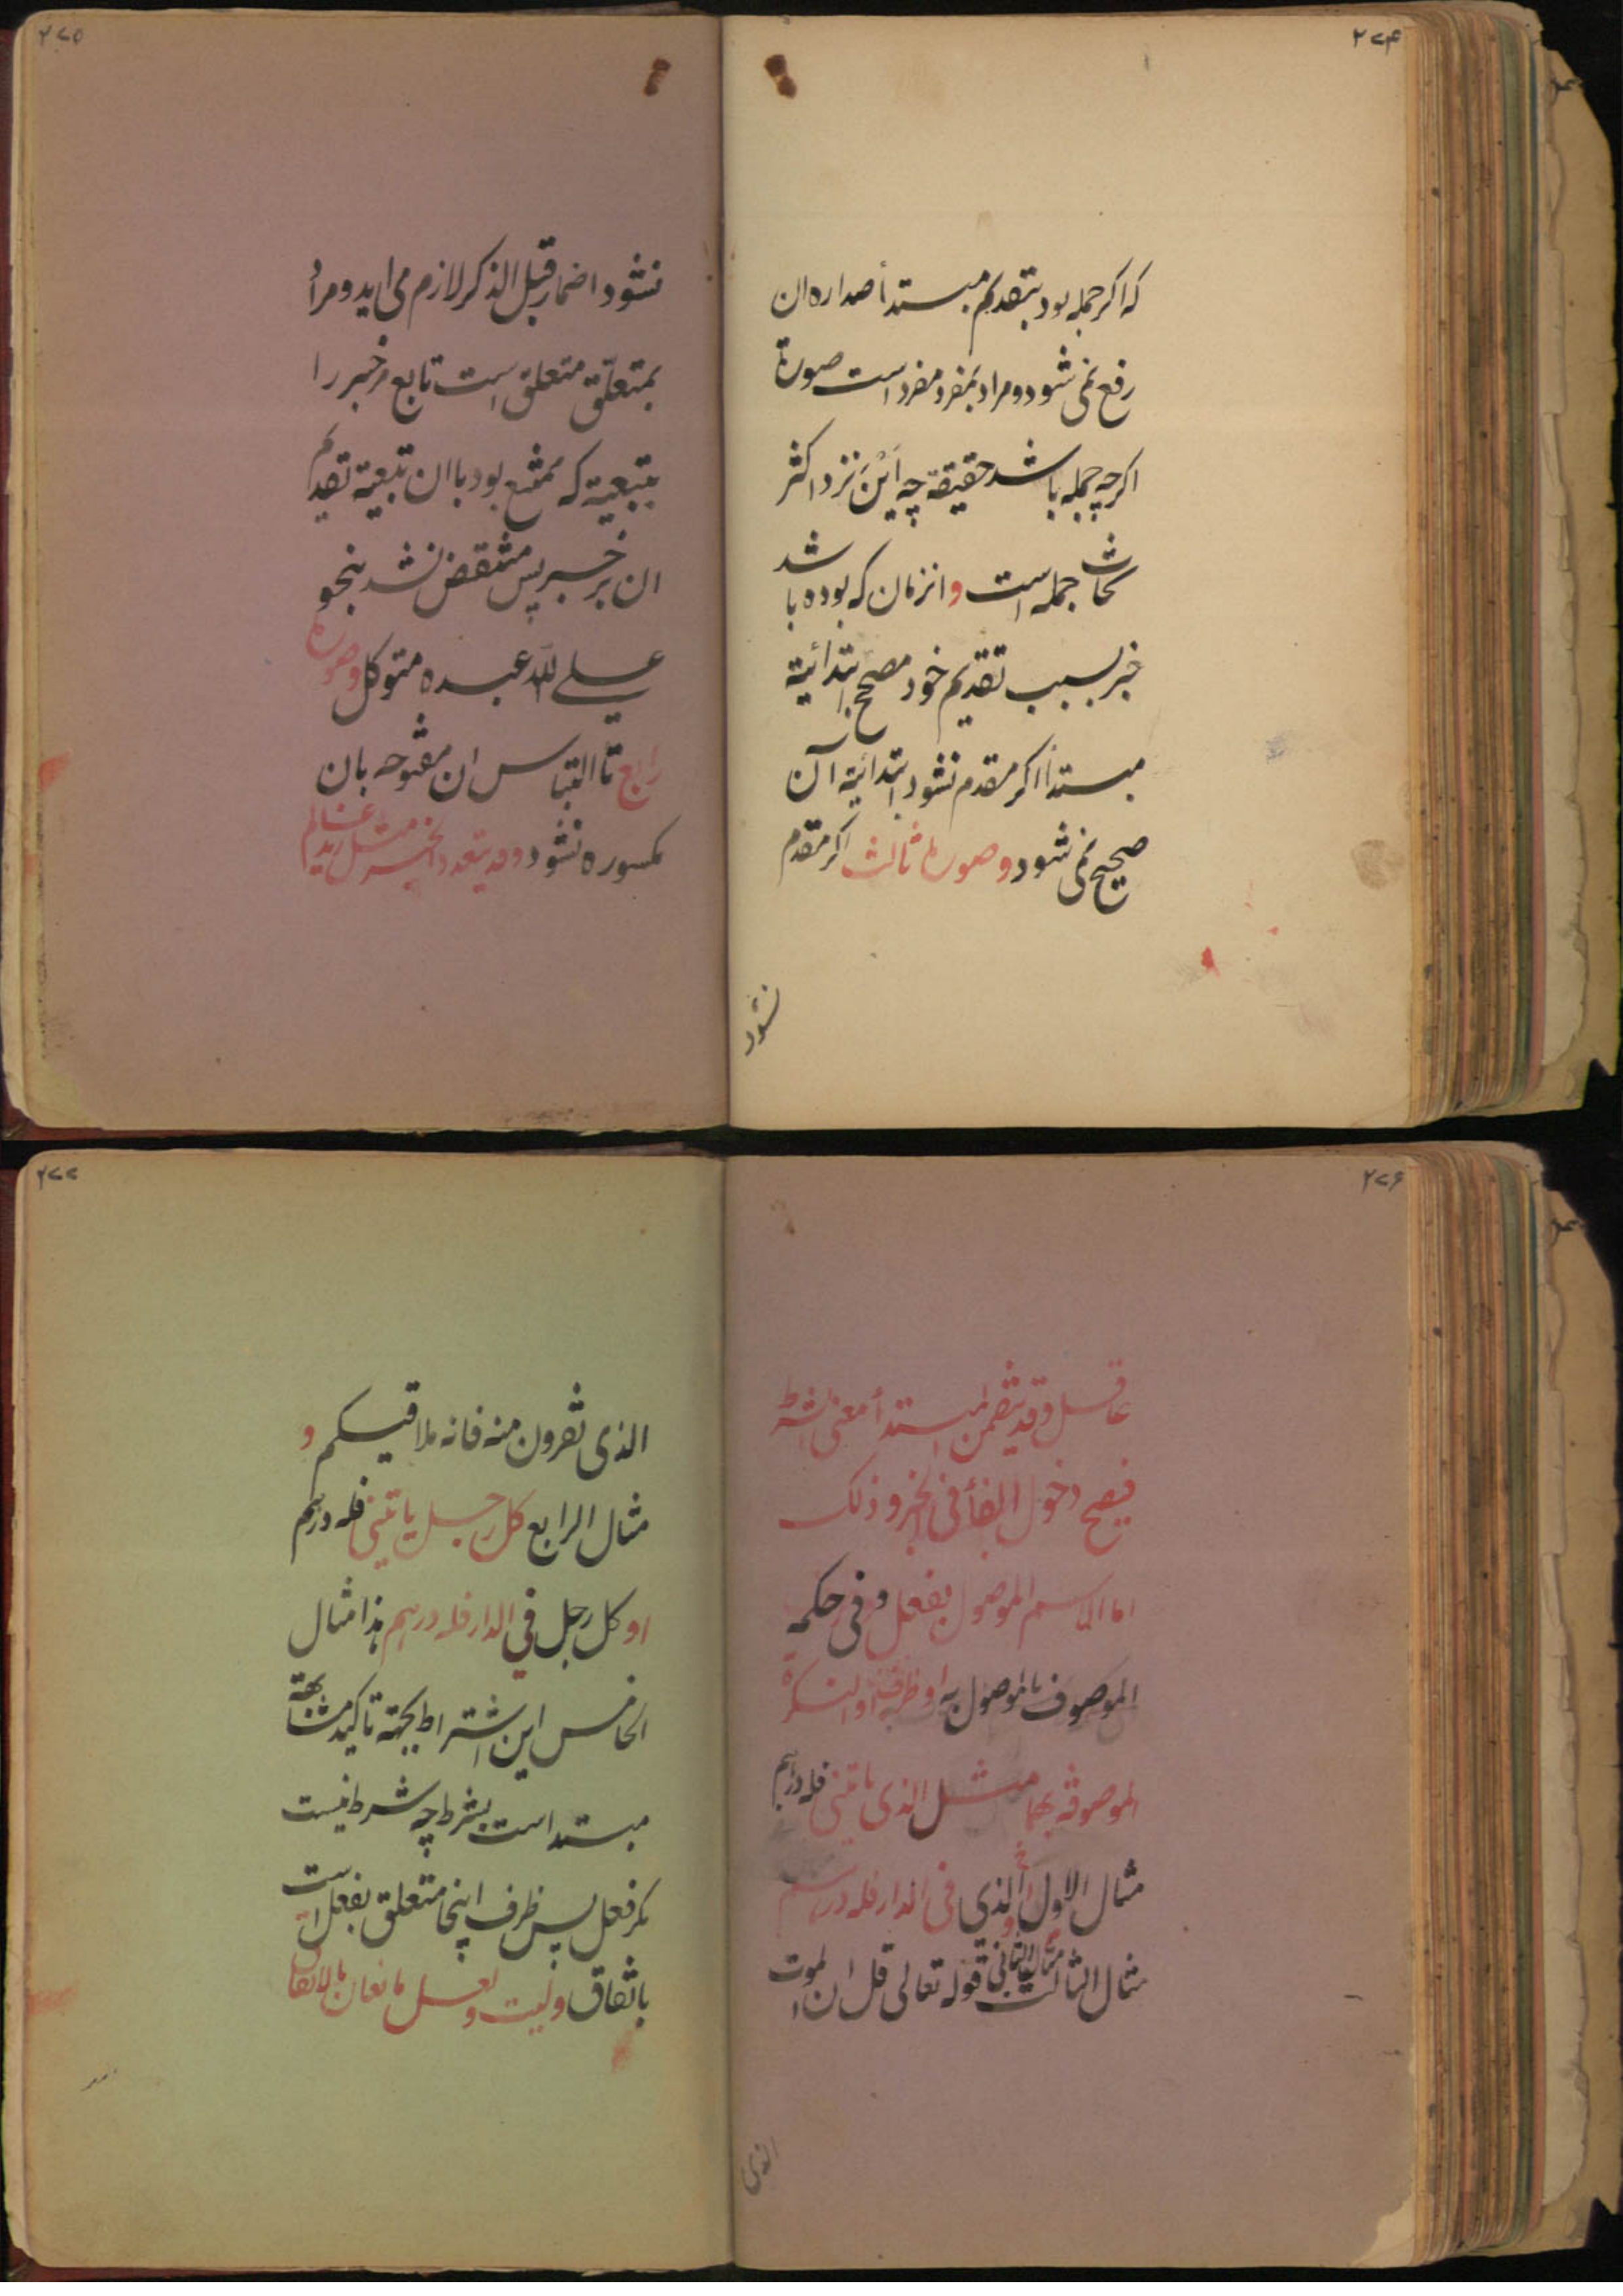 ۲۷۴
که اکر جمله بود بتقدیم مبتدأ صداره ان
رفع نمی شود و مراد بمفرد مفرد است صورة
اکر چه جمله باشد حقیقة چه اَیْنَ نزد اکثر
نحاث جمله است و انزمان که بوده باشد
خبر بسبب تقدیم خود مصحح ابتدائیة
مبتدأ اکر مقدم نشود ابتدائیة آن
صحیح نمی شود و صورة ثالث اکر مقدم
نشود
۲۷۵
نشود اضمار قبل الذکر لازم می اید و مراد
بمتعلّق متعلق است تابع مر خبر را
بتبعیة که ممتنع بود با ان تبعیة تقدیم
ان بر خبر پس منتقض نشد بنحو
علی الله عبده متوکل و صورة
رابع تا التباس ان مفتوحه بان
مکسوره نشود و قد یتعدد الخبر مثل زید عالم
۲۷۶
عاقل و قد یتضمن المبتدأ معنی الشرط
فیصح دخول الفأ فی الخبر و ذلک
اما الاسم الموصول بفعل و فی حکمه
الموصوف بالموصول به او ظرف او النکرة
الموصوفة بهما مثل الذی یاتینی فله درهم
مثال الاول او الذی فی الدار فله درهم
مثال الثانی و مثال الثالث قوله تعالی قل ان الموت
الذی
۲۷۷
الذی تفرون منه فانه ملاقیکم و
مثال الرابع کل رجل یاتینی فله درهم
او کل رجل فی الدار فله درهم هذا مثال
الخامس این اشتراط بجهة تاکید مشابهة
مبتدا است بشرط چه شرط نیست
مکر فعل پس ظرف اینجا متعلق بفعل است
باتفاق و لیت و لعل مانعان بالاتفاق